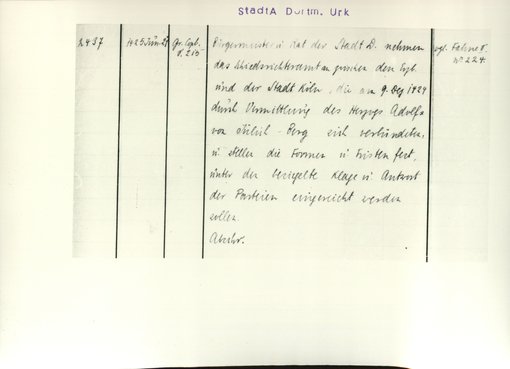 StadtA Dortm. Urk
2497
1425 Juni
Gr. Copb.
Bürgermeister u Rat der Stadt D. nehmen
das Schiedsrichteramt an zwischen dem Erzb.
und der Stadt Köln, die am 9. Dez 1424
durch Vermittlung des Herzogs Adolfs
von Jülich-Berg sich verbündeten,
u stellen die Formen u Fristen fest,
unter den besiegelte Klage u Antwort
der Parteien eingereicht werden
sollen.
Abschr.
vgl. Fahne
nº 224